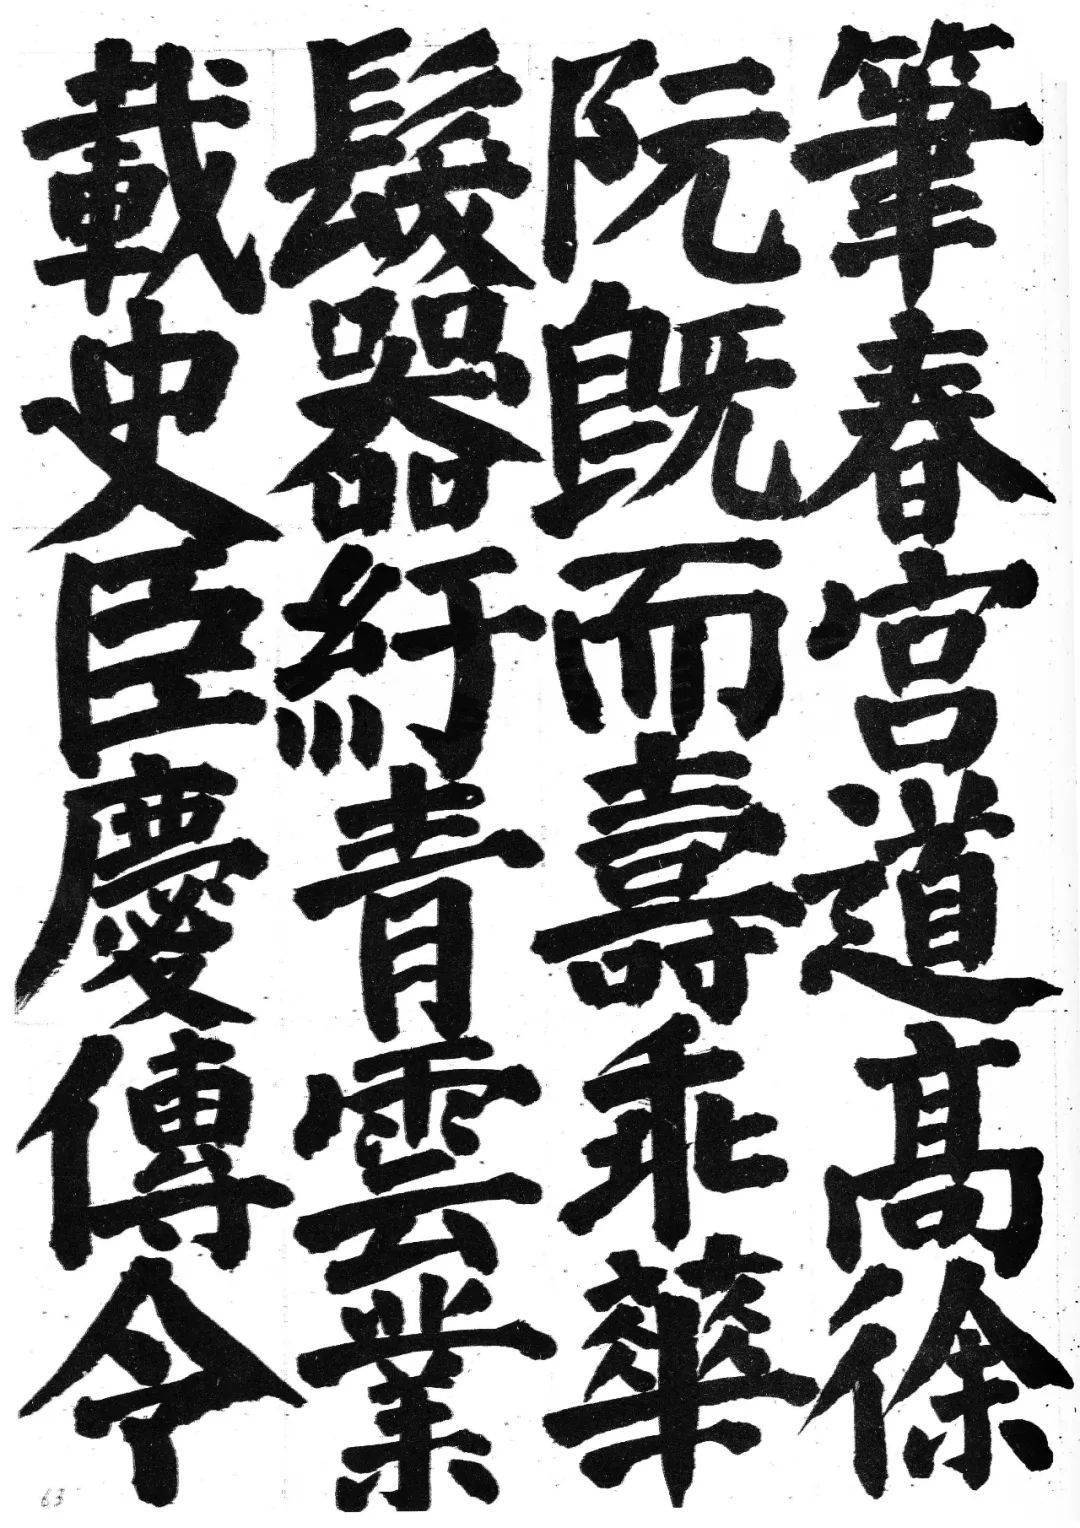 筆春宮道髙徐
阮既而壽乖華
髮器紆青雲業
載史臣慶傳令
63